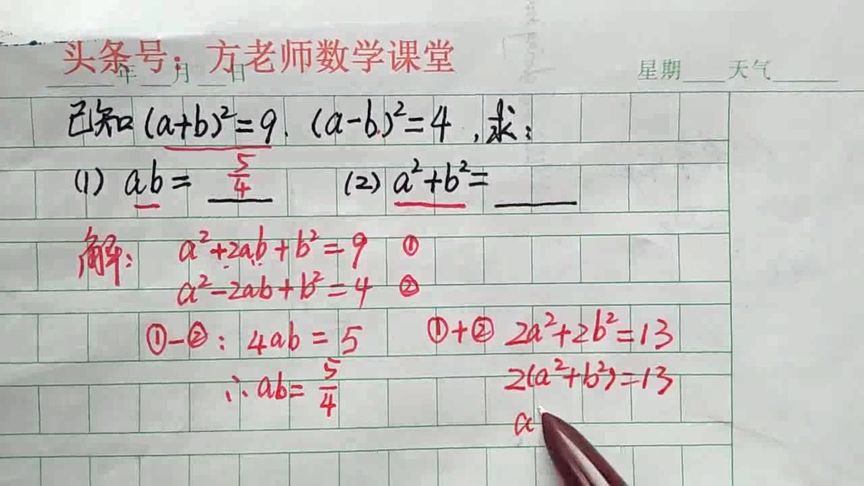 头条号：方老师数学课堂
年 月 日 星期 天气
已知(a+b)²=9, (a-b)²=4, 求：
(1) ab= 5/4 (2) a²+b²=
解： a²+2ab+b²=9 ①
a²-2ab+b²=4 ②
①-②：4ab=5 ①+② 2a²+2b²=13
∴ab=5/4 2(a²+b²)=13
a